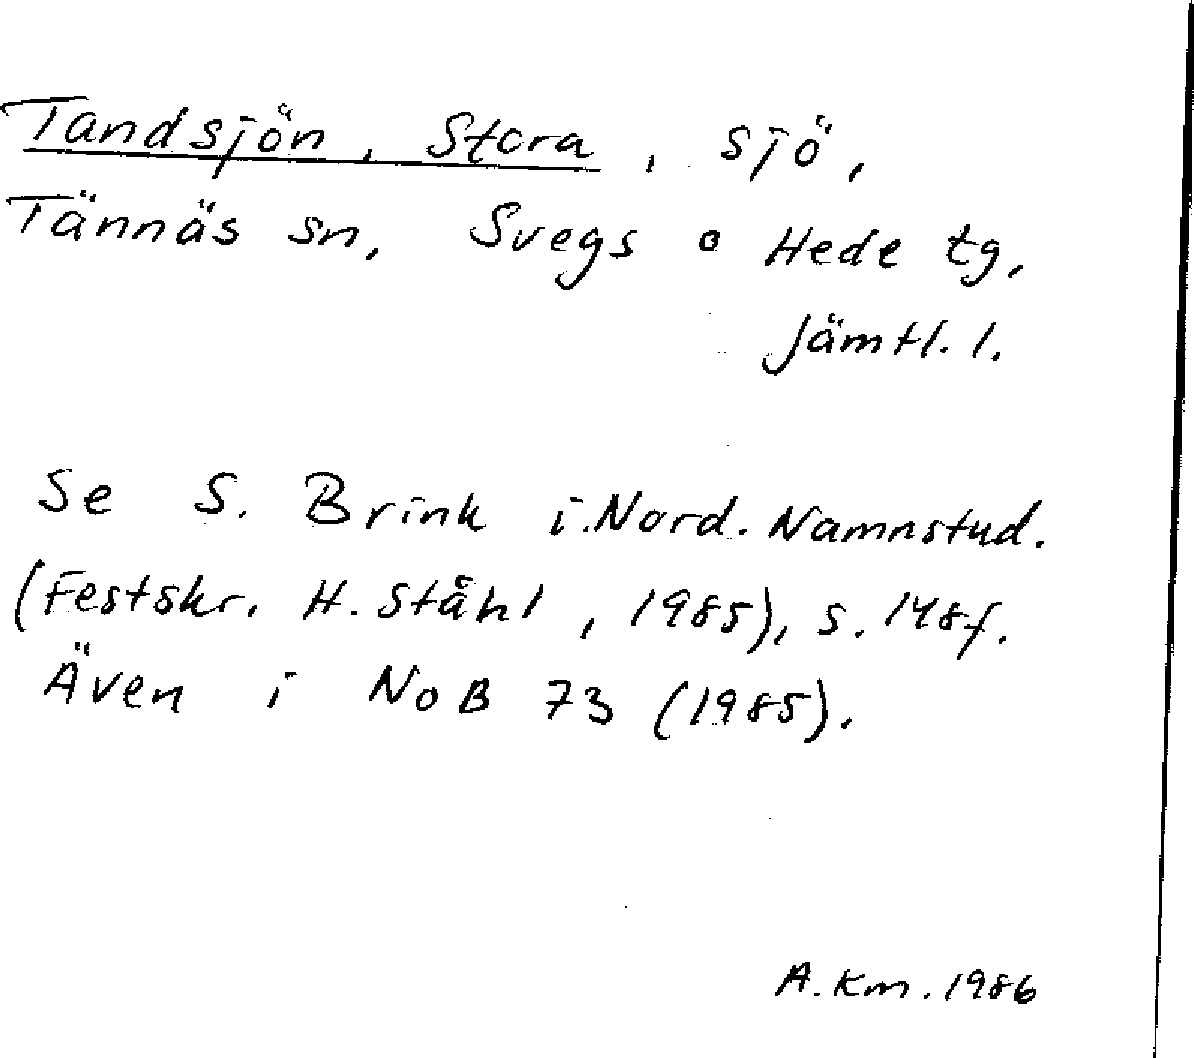 Tandsjön, Stora, sjö,
Tännäs sn, Svegs o Hede tg,
Jämtl. l.
Se S. Brink i Nord. Namnstud.
(Festskr. H. Ståhl, 1985), s. 148f.
Även i NoB 73 (1985).
A. Km. 1986